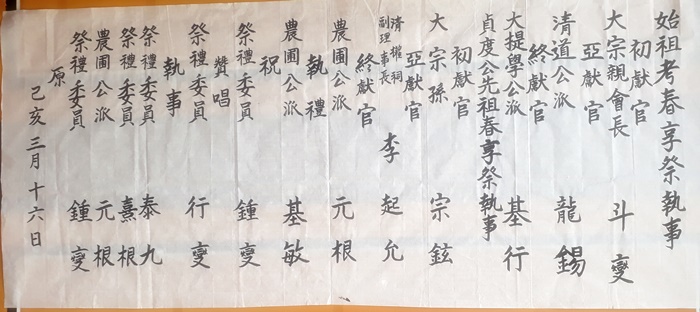 始祖考春享祭執事
初獻官
大宗親會長 斗燮
亞獻官
清道公派 龍錫
終獻官
大提學公派 基行
貞度公先祖春享祭執事
初獻官
大宗孫 宗鉉
亞獻官
清權祠
副理事長 李起允
終獻官
農圃公派 元根
執禮
農圃公派 基敏
祝
祭禮委員 鍾燮
贊唱
祭禮委員 行燮
執事
祭禮委員 泰九
祭禮委員 熹根
農圃公派 元根
祭禮委員 鍾燮
原
己亥三月十六日